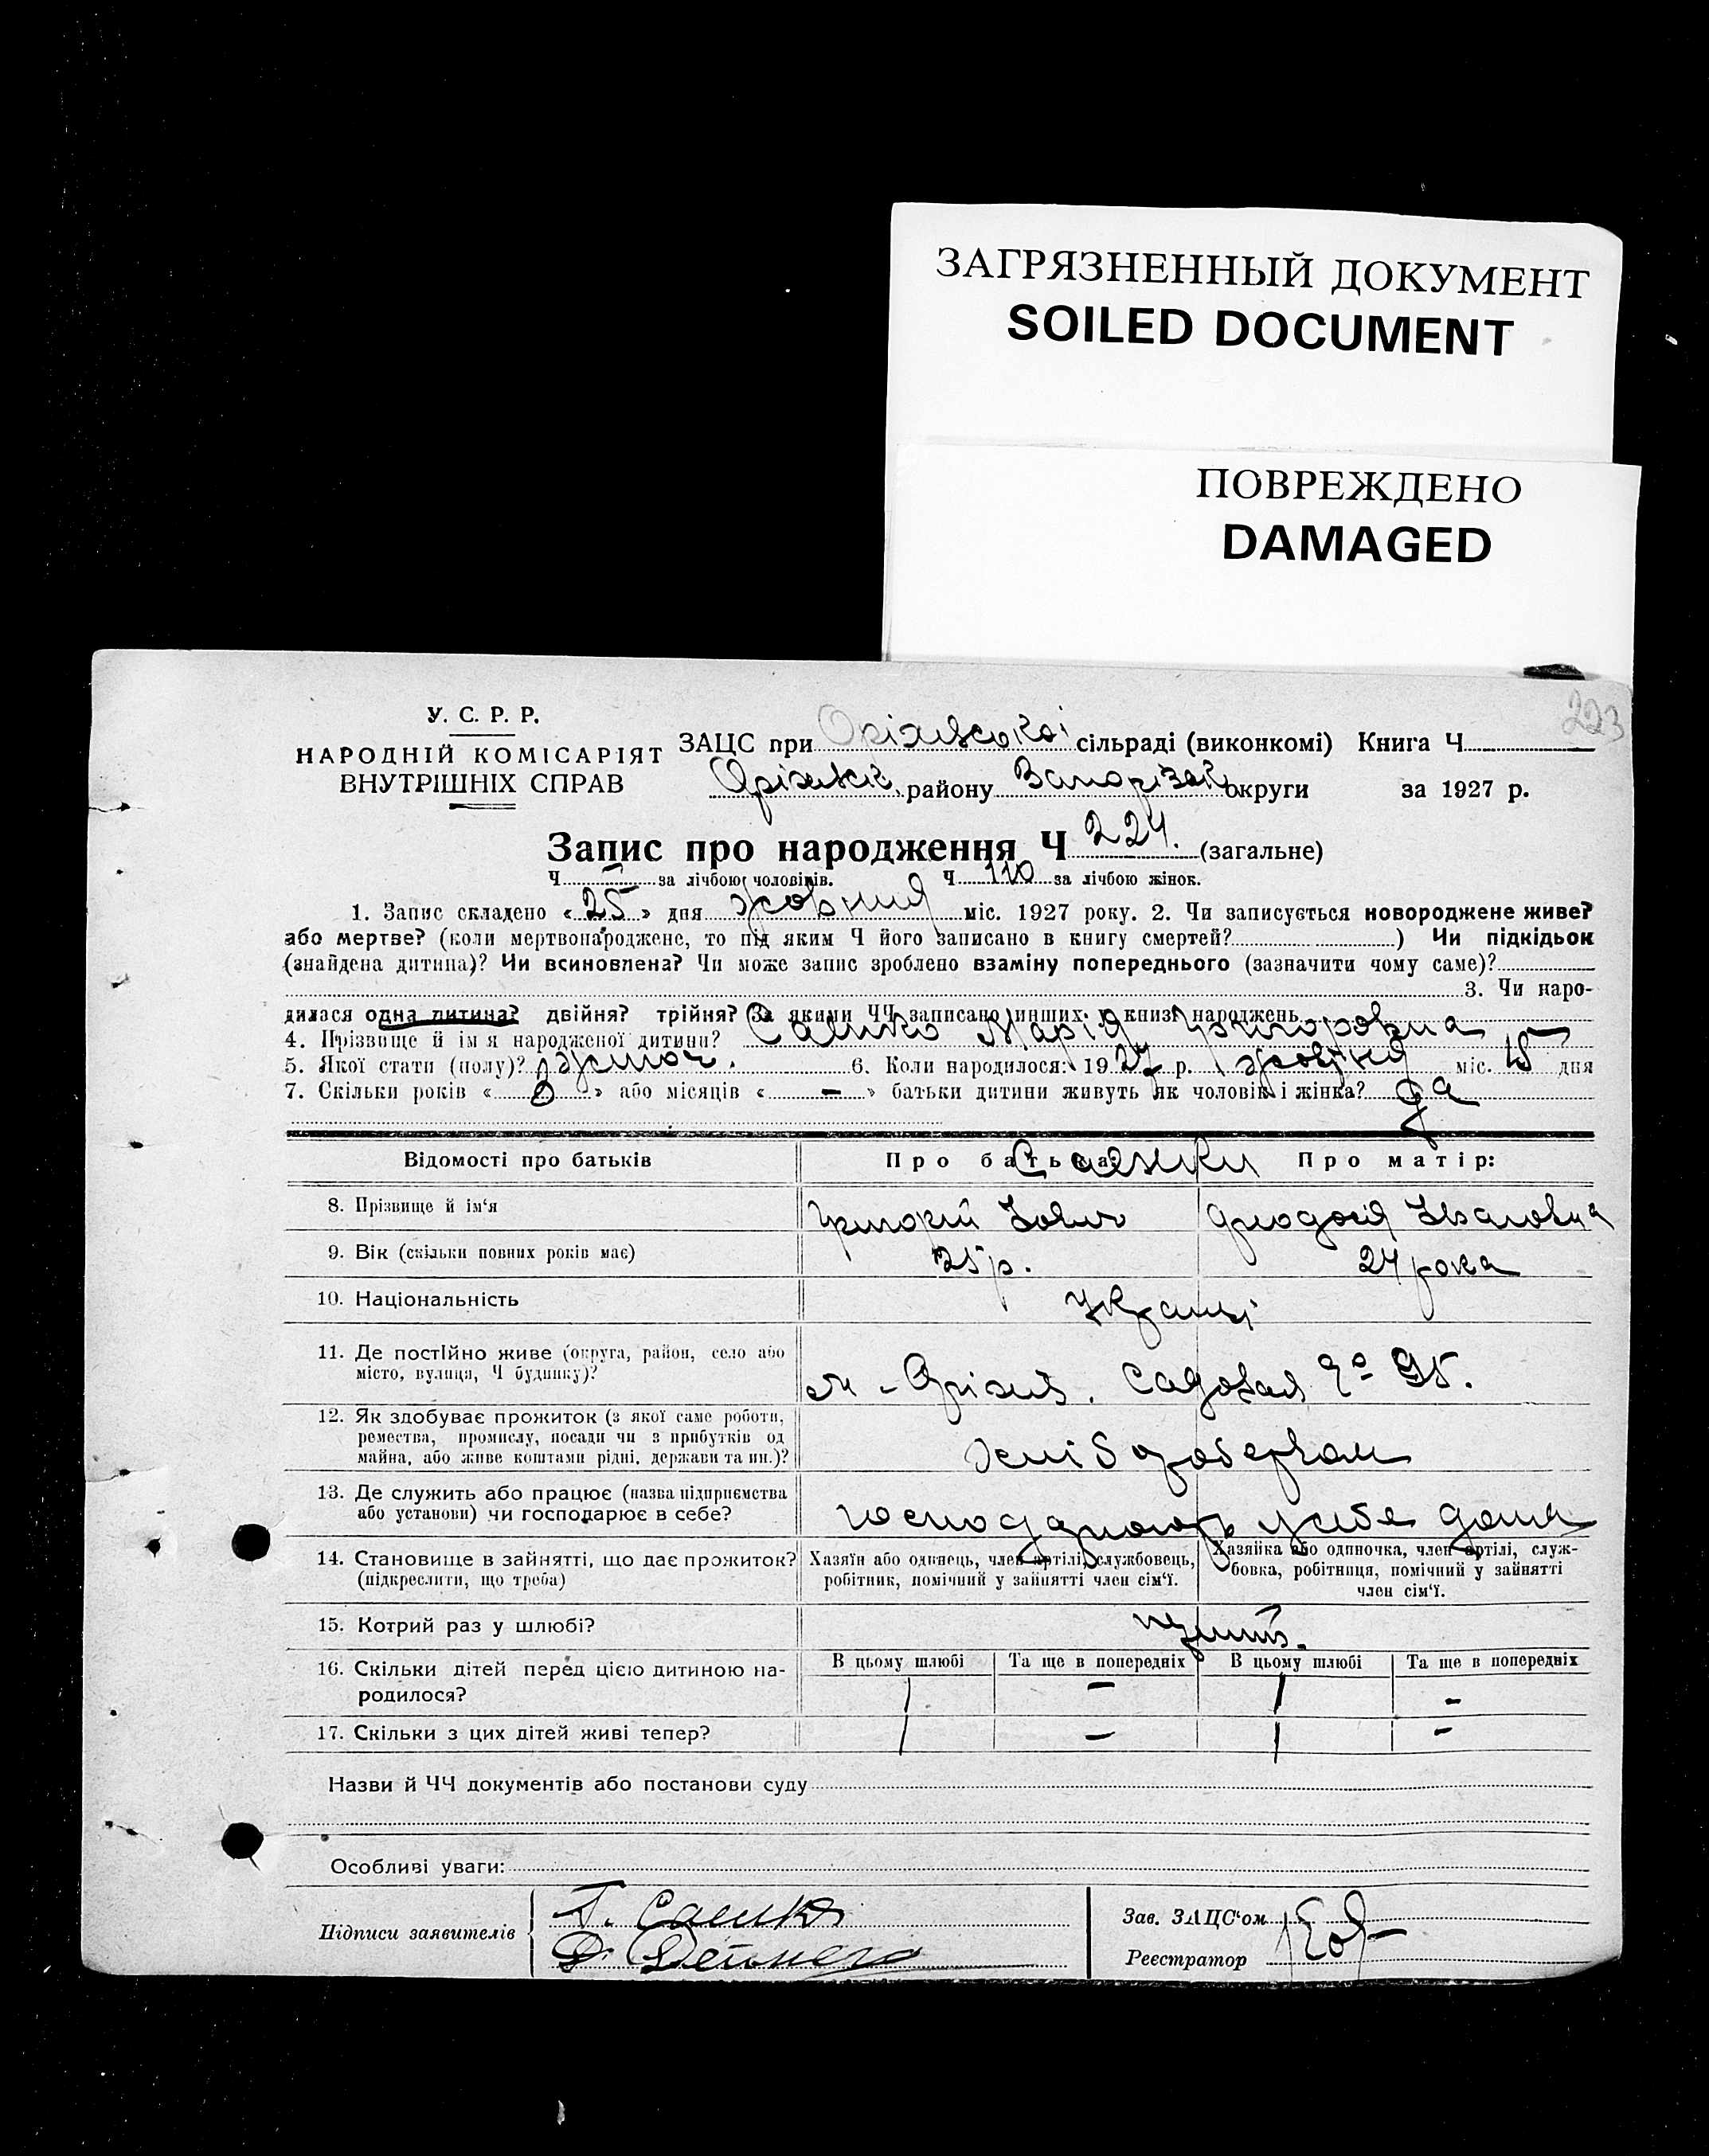 ЗАГРЯЗНЕННЫЙ ДОКУМЕНТ
SOILED DOCUMENT
ПОВРЕЖДЕНО
DAMAGED
223
У. С. Р. Р.
НАРОДНІЙ КОМІСАРІЯТ
ВНУТРІШНІХ СПРАВ
ЗАЦС при Оріхівській сільраді (виконкомі) Книга Ч
Оріхівськ. району Запорізьк округи за 1927 р.
Запис про народження Ч 224. (загальне)
Ч — за лічбою чоловіків. Ч 110 за лічбою жінок.
1. Запис складено « 25 » дня жовтня міс. 1927 року. 2. Чи записується новороджене живе?
або мертве? (коли мертвонароджене, то під яким Ч його записано в книгу смертей? ) Чи підкідьок
(знайдена дитина)? Чи всиновлена? Чи може запис зроблено взаміну попереднього (зазначити чому саме)?
3. Чи наро-
дилася одна дитина? двійня? трійня? За якими ЧЧ записано инших в книзі народжень
4. Прізвище й ім'я народженої дитини? Саенко Марія Григоровна
5. Якої стати (полу)? жіноч. 6. Коли народилося: 1927 р. жовтня міс. 15 дня
7. Скільки років « 3 » або місяців « — » батьки дитини живуть як чоловік і жінка? да
Відомості про батьків Про батька: Саенки Про матір:
8. Прізвище й ім'я Григорій Іович Феодосія Івановна
9. Вік (скільки повних років має) 25 р. 24 рока
10. Національність Українці
11. Де постійно живе (округа, район, село або
місто, вулиця, Ч будинку)? м - Оріхів. Садовая № 95.
12. Як здобуває прожиток (з якої саме роботи,
ремества, промислу, посади чи з прибутків од
майна, або живе коштами рідні, держави та ин.)? хліборобством
13. Де служить або працює (назва підприємства
або установи) чи господарює в себе? господарюють у себе дома
14. Становище в зайнятті, що дає прожиток?
(підкреслити, що треба)
Хазяїн або одинець, член артілі, службовець,
робітник, помічний у зайнятті член сім'ї.
Хазяйка або одиночка, член артілі, служ-
бовка, робітниця, помічний у зайнятті
член сім'ї.
15. Котрий раз у шлюбі? перший.
16. Скільки дітей перед цією дитиною на-
родилося?
В цьому шлюбі Та ще в попередніх В цьому шлюбі Та ще в попередніх
1 — 1 —
17. Скільки з цих дітей живі тепер? 1 — 1 —
Назви й ЧЧ документів або постанови суду
Особливі уваги:
Підписи заявителів
Г. Саенко
Зав. ЗАЦС'ом
Реєстратор